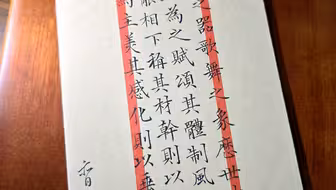 之器歌舞之象歷世
為之賦頌其體制風
相下稱其材幹則以
主美其感化則以垂